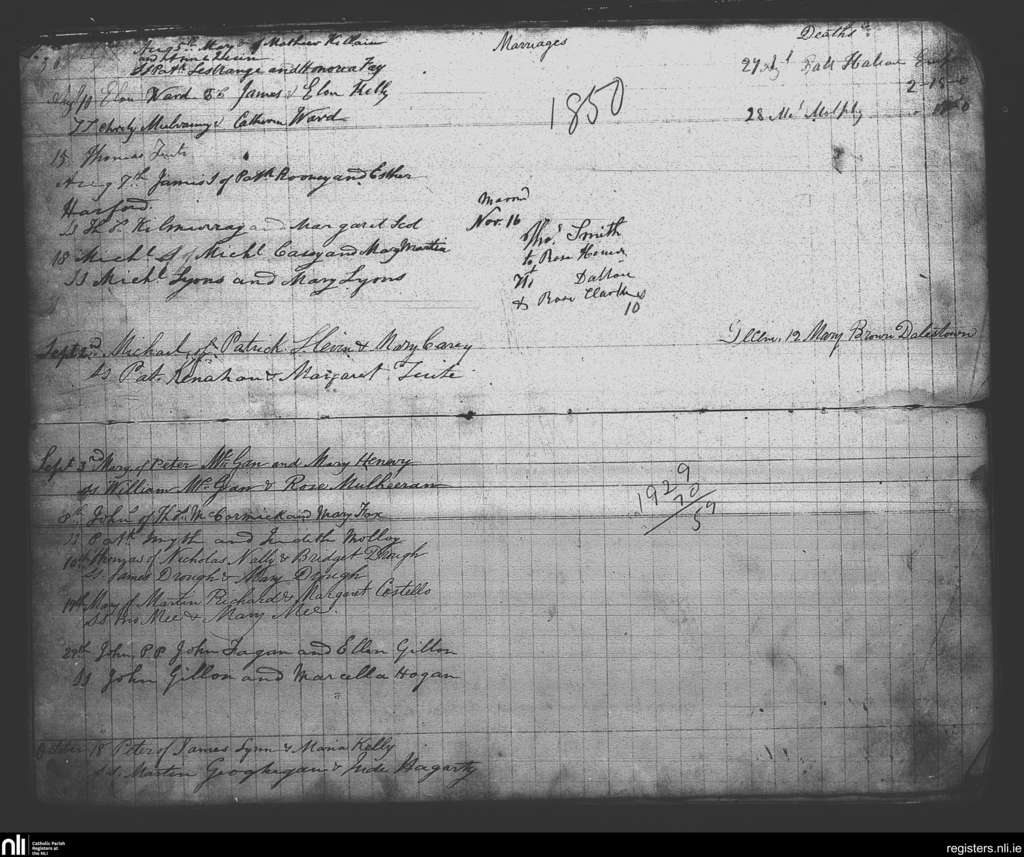 Aug 5th Mary of Mathew Killain
and Anne
Ss Patk LesRange and Honora Fay
Augt 11 Elen Ward to James & Elen Kelly
Christy Mulvanny & Catherine Ward
15 Thomas Tuite
Aug 7th James S of Patk Rooney and Esther
Harford
Ss Ths Kilmurray and Margaret Led
18 Michl S of Michl Casey and Mary Martin
Ss Michl Lyons and Mary Lyons
Sept 2d Michael, of Patrick Slevin & Mary Carey
Ss Pat. Kenahan & Margaret Tuite
Sept 3rd Mary of Peter McGan and Mary Henery
Ss William McGan & Rose Mulheeran
8th John S of Ths McCormick and Mary Fox
Ss Patk Smyth and Judith Molloy
10th Thomas of Nicholas Nally & Bridget Drough
Ss James Drough & Mary Drough
17th Mary of Martin Richard & Margaret Costello
Ss Mee & Mary Mee.
29th John P.P John Fagan and Ellen Gillon
Ss John Gillon and Marcella Hogan
October 18 Peter of James Lynn & Maria Kelly
Ss. Martin Geoghegan & Jude Hagarty
Marriages
1850
Marrd
Nov. 16
Thos Smith
to Rose
Wt Dalton
& Rose Clarke
10
1929
70
59
Deaths
27 Augt Patt
2-15
28 Ml Murphy
12 Mary Brown Dalestown
nli
Catholic Parish
Registers at
the NLI
registers.nli.ie